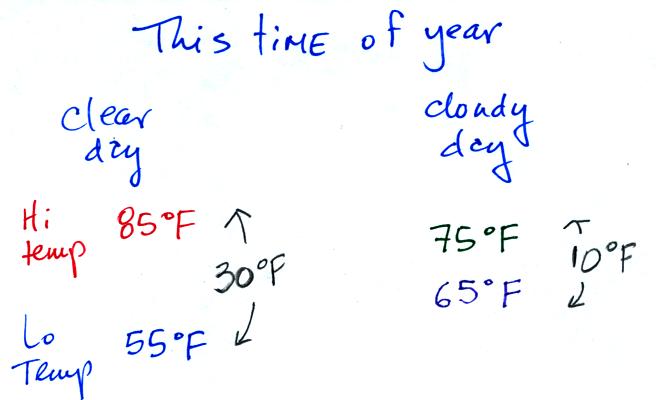 This tiME of year
clear
day
cloudy
day
Hi
temp
85°F
30°F
75°F
65°F
10°F
Lo
Temp
55°F